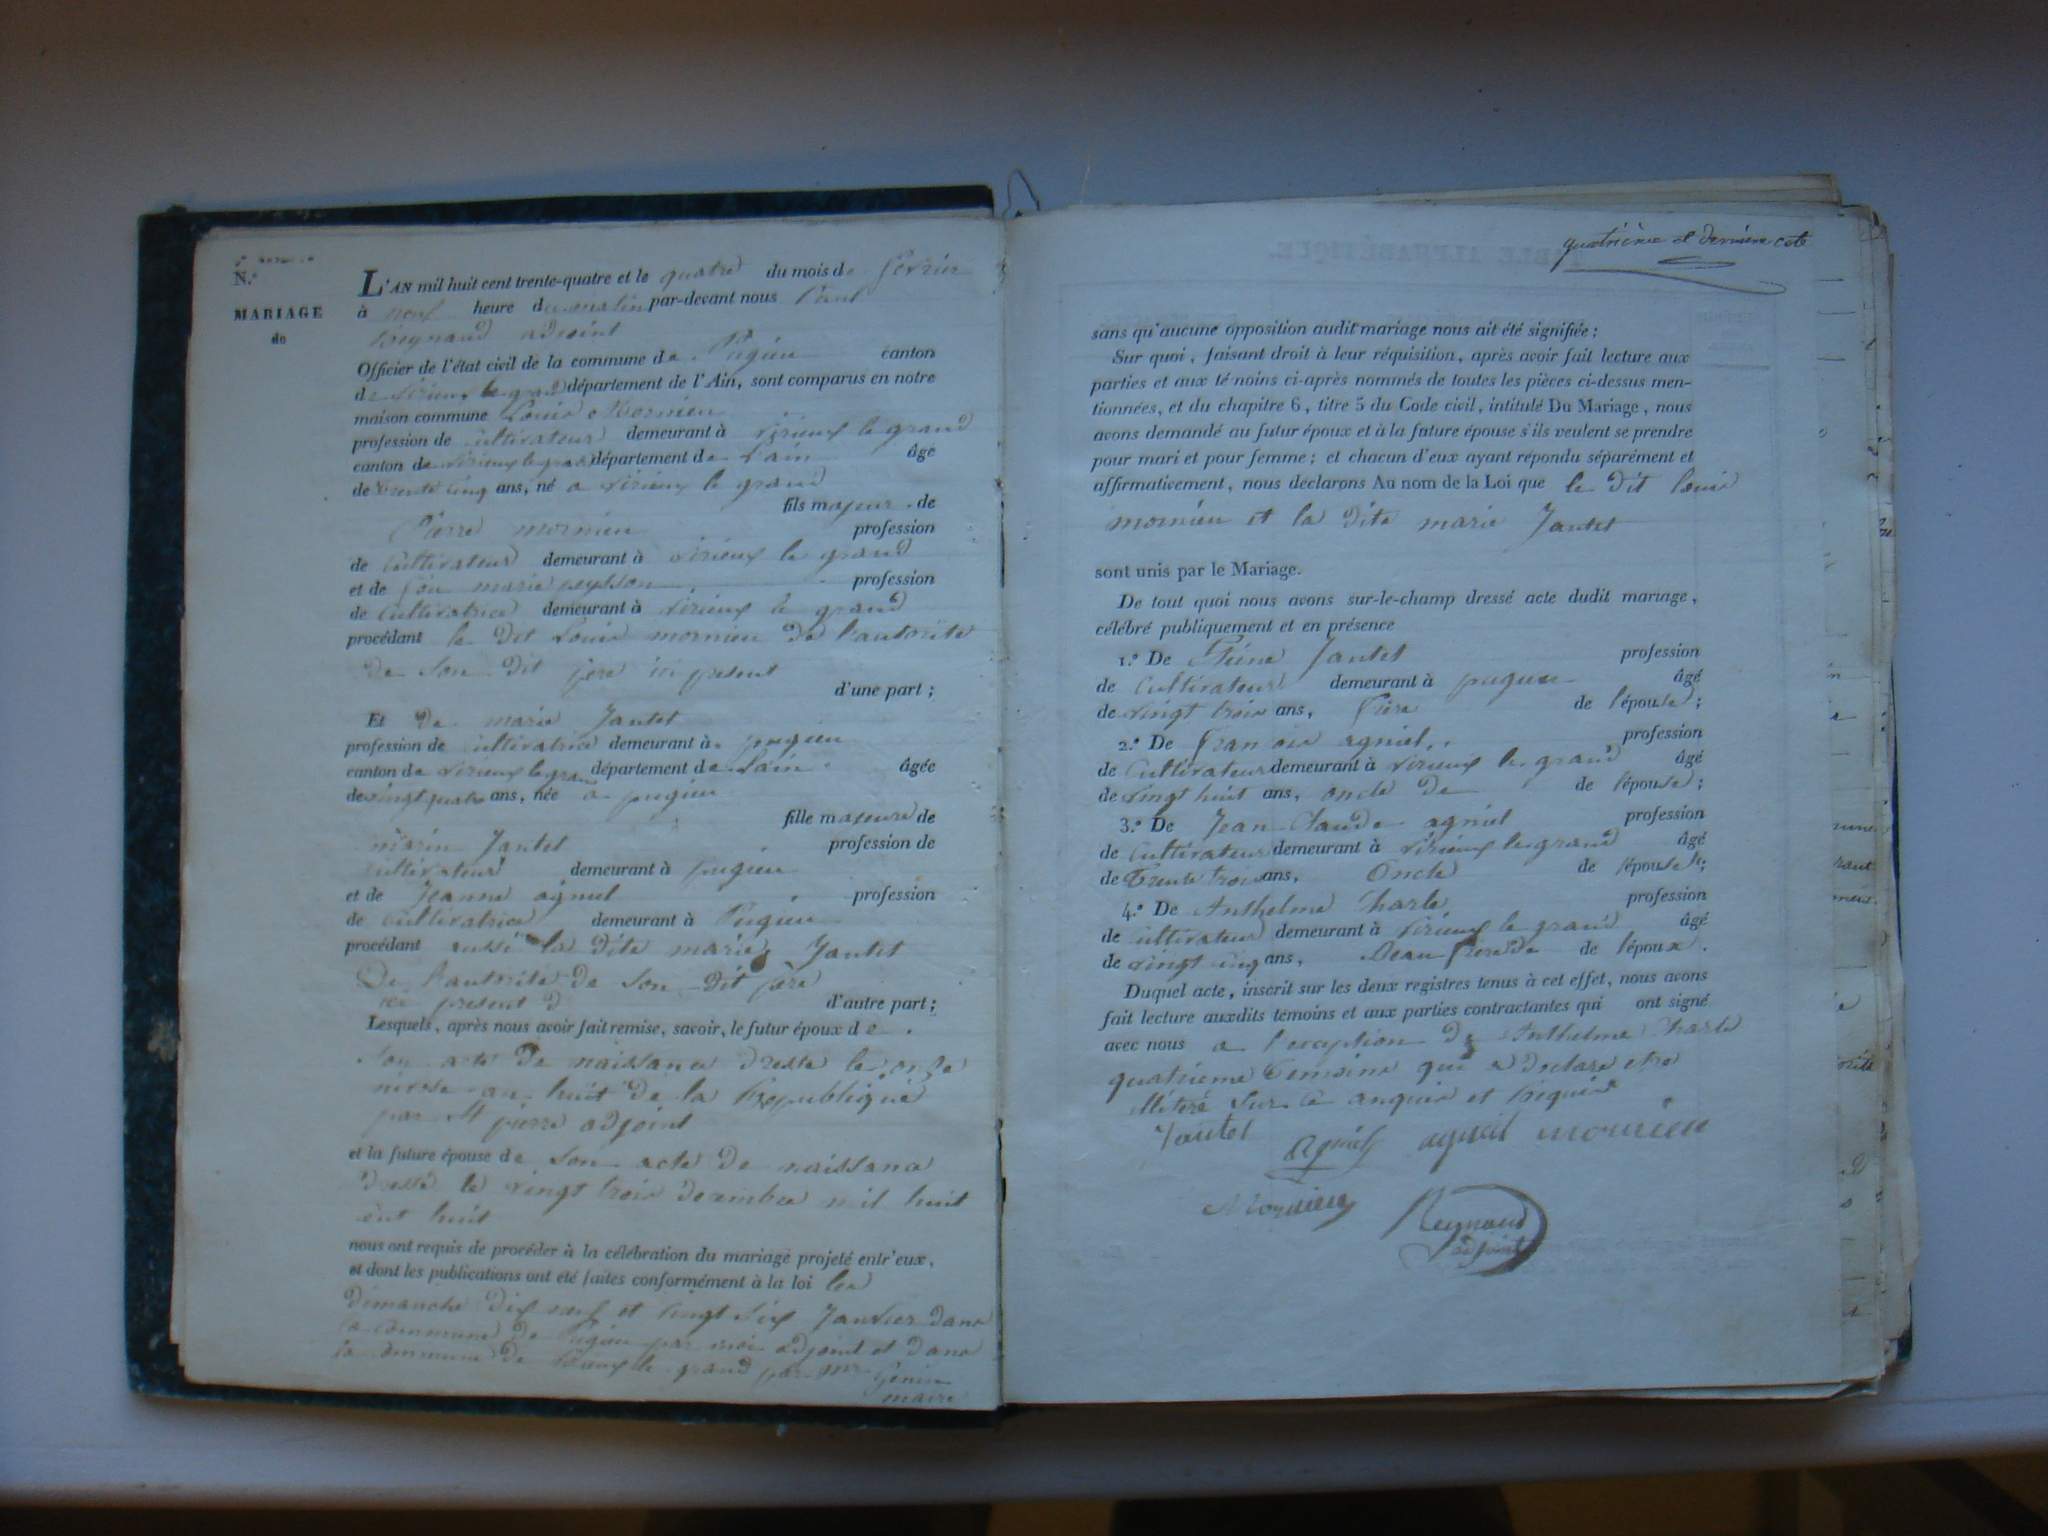 N.º
MARIAGE
de
L'AN mil huit cent trente-quatre et le quatre du mois de fevrier
à neuf heure du matin par-devant nous Paul
Reynaud adjoint
Officier de l'état civil de la commune de Pugieu canton
de virieux le grand département de l'Ain, sont comparus en notre
maison commune Louis Mornieu
profession de cultivateur demeurant à virieux le grand
canton de virieux le grand département de Lain âgé
de trente cinq ans, né a virieux le grand
fils majeur de
Pierre mornieu profession
de Cultivateur demeurant à virieux le grand
et de feu marie peysson profession
de Cultivatrice demeurant à virieux le grand
procédant le dit Louis mornieu de l'autorité
de son dit père ici present
d'une part ;
Et de marie Jantet
profession de cultivatrice demeurant à pugieu
canton de virieux le grand département de Lain âgée
de vingt quatre ans, née a pugieu
fille majeure de
marin Jantet profession de
cultivateur demeurant à pugieu
et de Jeanne agniel profession
de Cultivatrice demeurant à Pugieu
procédant aussi la dite marie Jantet
De l'autorité de son dit père
ici present d'autre part ;
Lesquels, après nous avoir fait remise, savoir, le futur époux de
Son acte de naissance dressé le onze
nivose an huit de la Republique
par St pierre adjoint
et la future épouse de son acte de naissance
dressé le vingt trois decembre mil huit
cent huit
nous ont requis de procéder à la célébration du mariage projeté entr'eux,
et dont les publications ont été faites conformément à la loi les
dimanche dix neuf et vingt six Janvier dans
la commune de Pugieu par moi adjoint et dans
la commune de virieux le grand par mr Genin
maire
quatrième et dernière cote
sans qu'aucune opposition audit mariage nous ait été signifiée ;
Sur quoi, faisant droit à leur réquisition, après avoir fait lecture aux
parties et aux témoins ci-après nommés de toutes les pièces ci-dessus men-
tionnées, et du chapitre 6, titre 5 du Code civil, intitulé Du Mariage, nous
avons demandé au futur époux et à la future épouse s'ils veulent se prendre
pour mari et pour femme ; et chacun d'eux ayant répondu séparément et
affirmativement, nous déclarons Au nom de la Loi que le dit louis
mornieu et la dite marie Jantet
sont unis par le Mariage.
De tout quoi nous avons sur-le-champ dressé acte dudit mariage,
célébré publiquement et en présence
1.º De Jantet profession
de Cultivateur demeurant à pugieu âgé
de vingt trois ans, frère de l'épouse ;
2.º De François agniel profession
de Cultivateur demeurant à virieux le grand âgé
de vingt huit ans, oncle de de lépouse ;
3.º De Jean Claude agniel profession
de Cultivateur demeurant à virieux le grand âgé
de Trente trois ans, Oncle de lépouse ;
4.º De Anthelme Charle profession
de cultivateur demeurant à virieux le grand âgé
de vingt cinq ans, Beau frere de de l'époux .
Duquel acte, inscrit sur les deux registres tenus à cet effet, nous avons
fait lecture auxdits témoins et aux parties contractantes qui ont signé
avec nous a l'exception de Anthelme Charle
quatrieme temoins qui a declare etre
illiteré sur ce enquis et requis
Jantet agniel agniel mornieu
Mornieu Reynaud
adjoint